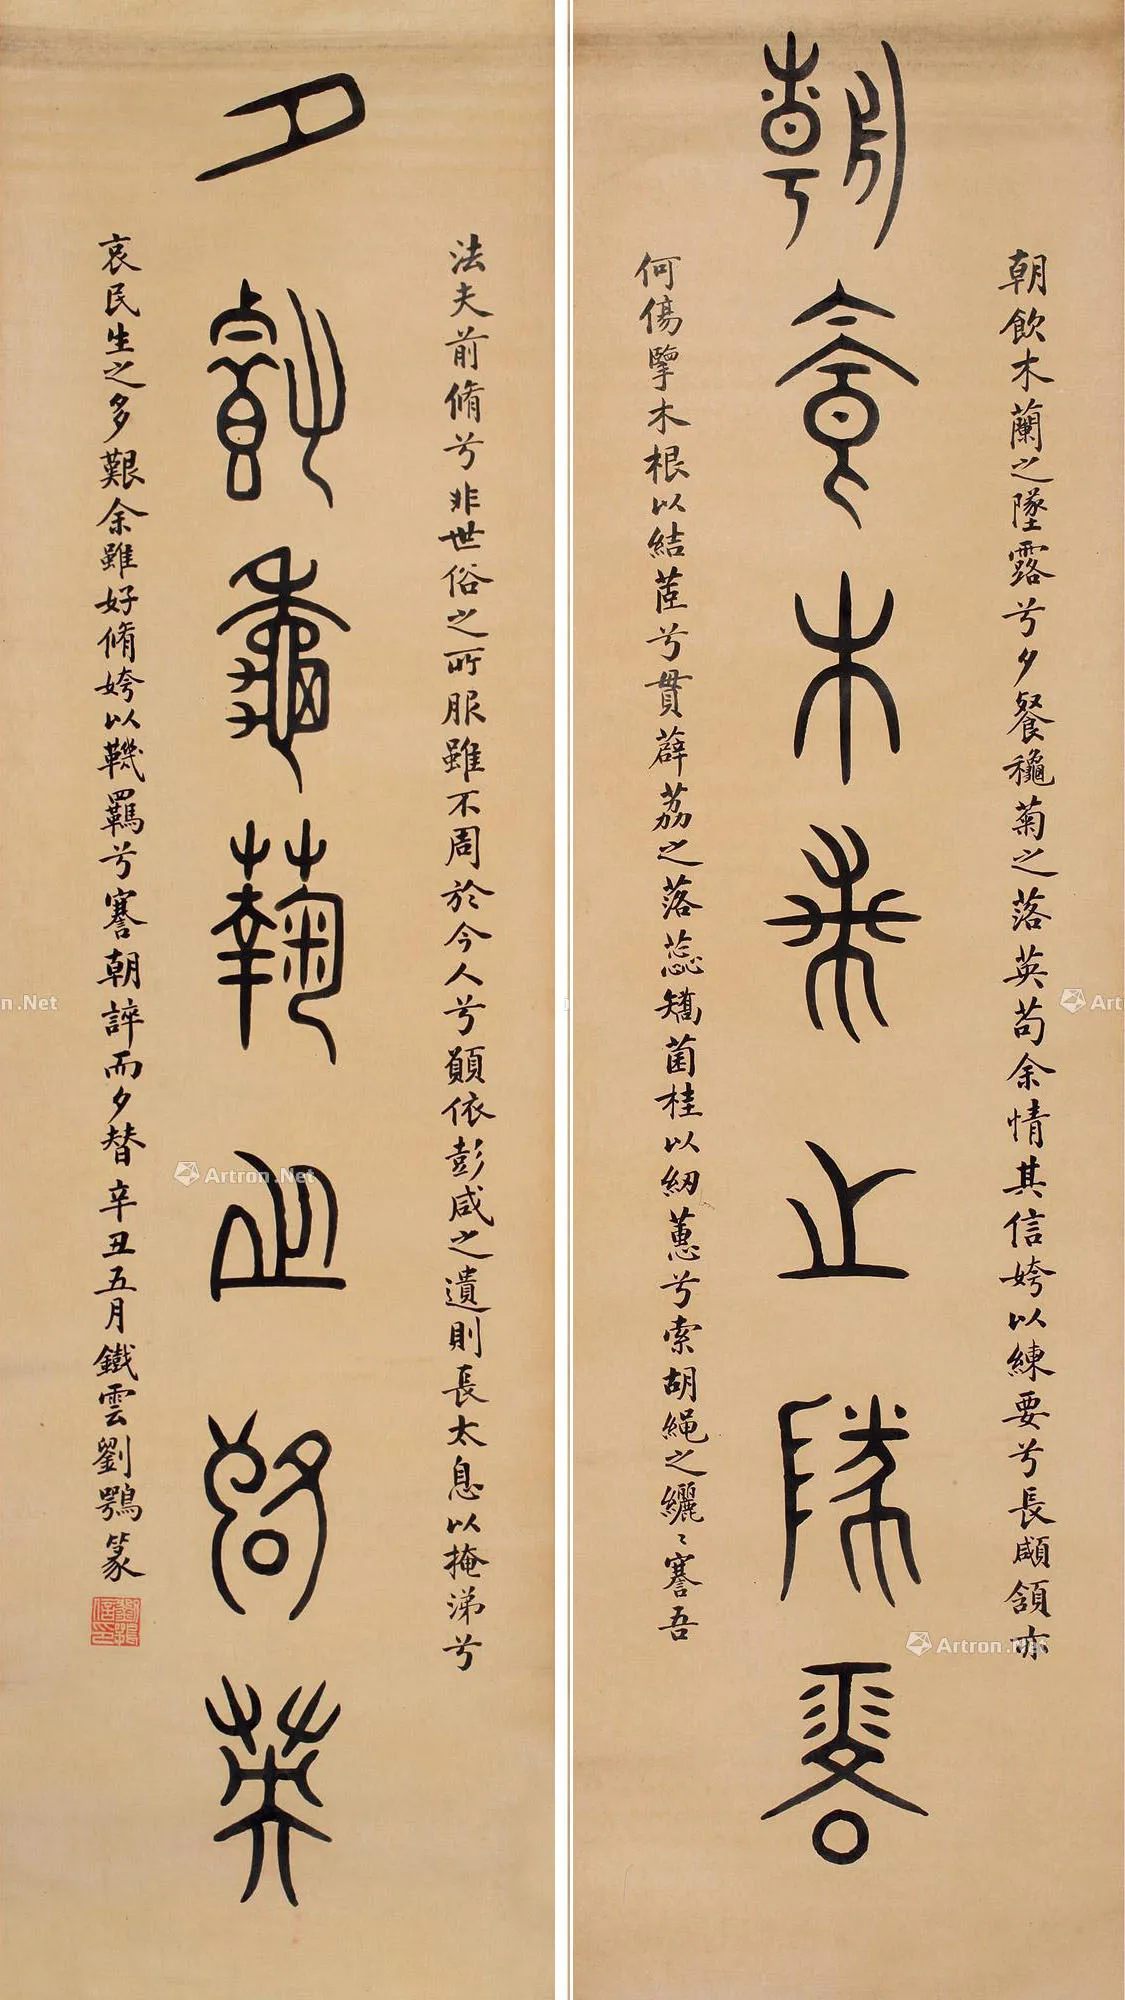 朝飲木蘭之墜露
朝飲木蘭之墜露兮夕餐穐菊之落英苟余情其信姱以練要兮長顑頷亦
何傷擥木根以結茝兮貫薜荔之落蕊矯菌桂以紉蕙兮索胡繩之纚〻謇吾
夕餐穐菊之落英
法夫前脩兮非世俗之所服雖不周於今人兮願依彭咸之遺則長太息以掩涕兮
哀民生之多艱余雖好脩姱以鞿羈兮謇朝誶而夕替辛丑五月鐵雲劉鶚篆
劉鶚信印
Artron.Net
Artron.Net